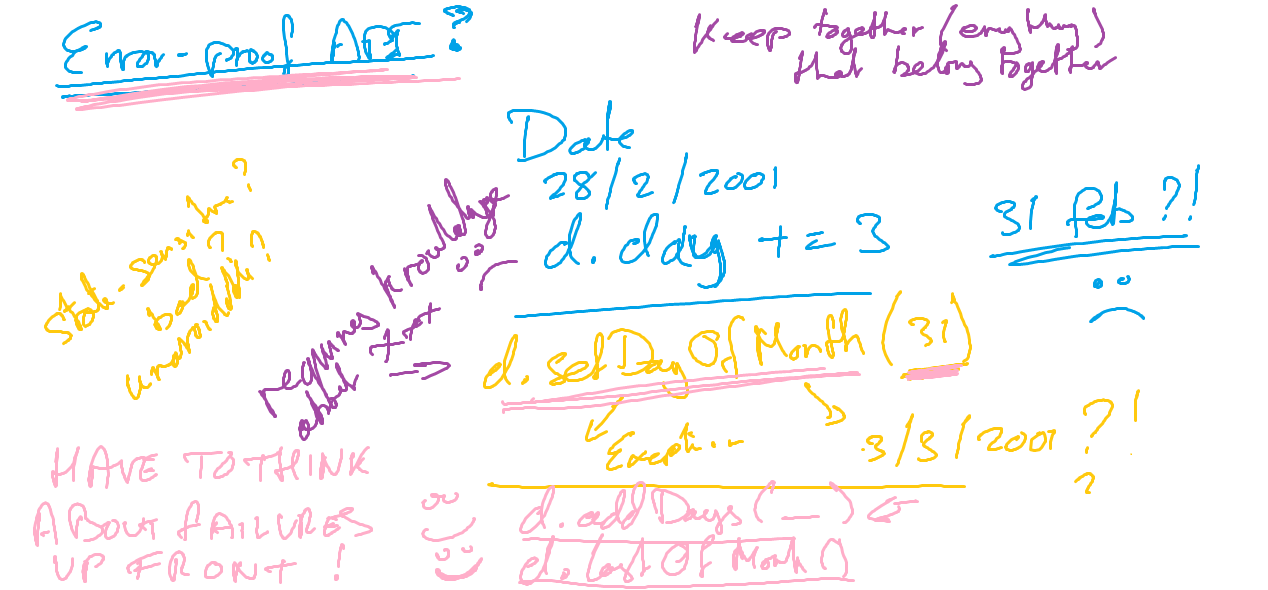 Error-proof API?
Keep together (everything)
that belong together
Date
28/2/2001
d. day += 3
31 feb ?!
state-sensitive?
bad?
unavoidable?
requires knowledge
about
d. setDayOfMonth (31)
Exception
3/3/2001 ?!
?
HAVE TO THINK
ABOUT FAILURES
UP FRONT !
d. addDays (_)
d. lastOfMonth()